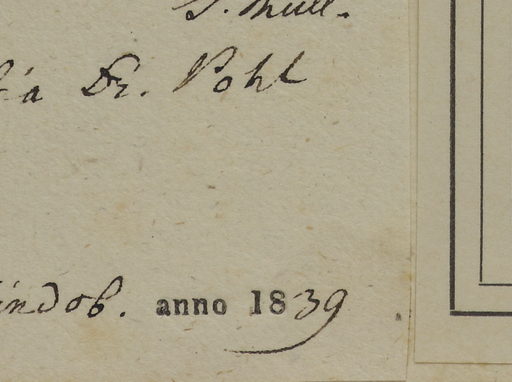 Müll.
Dr. Pohl
indob. anno 1839